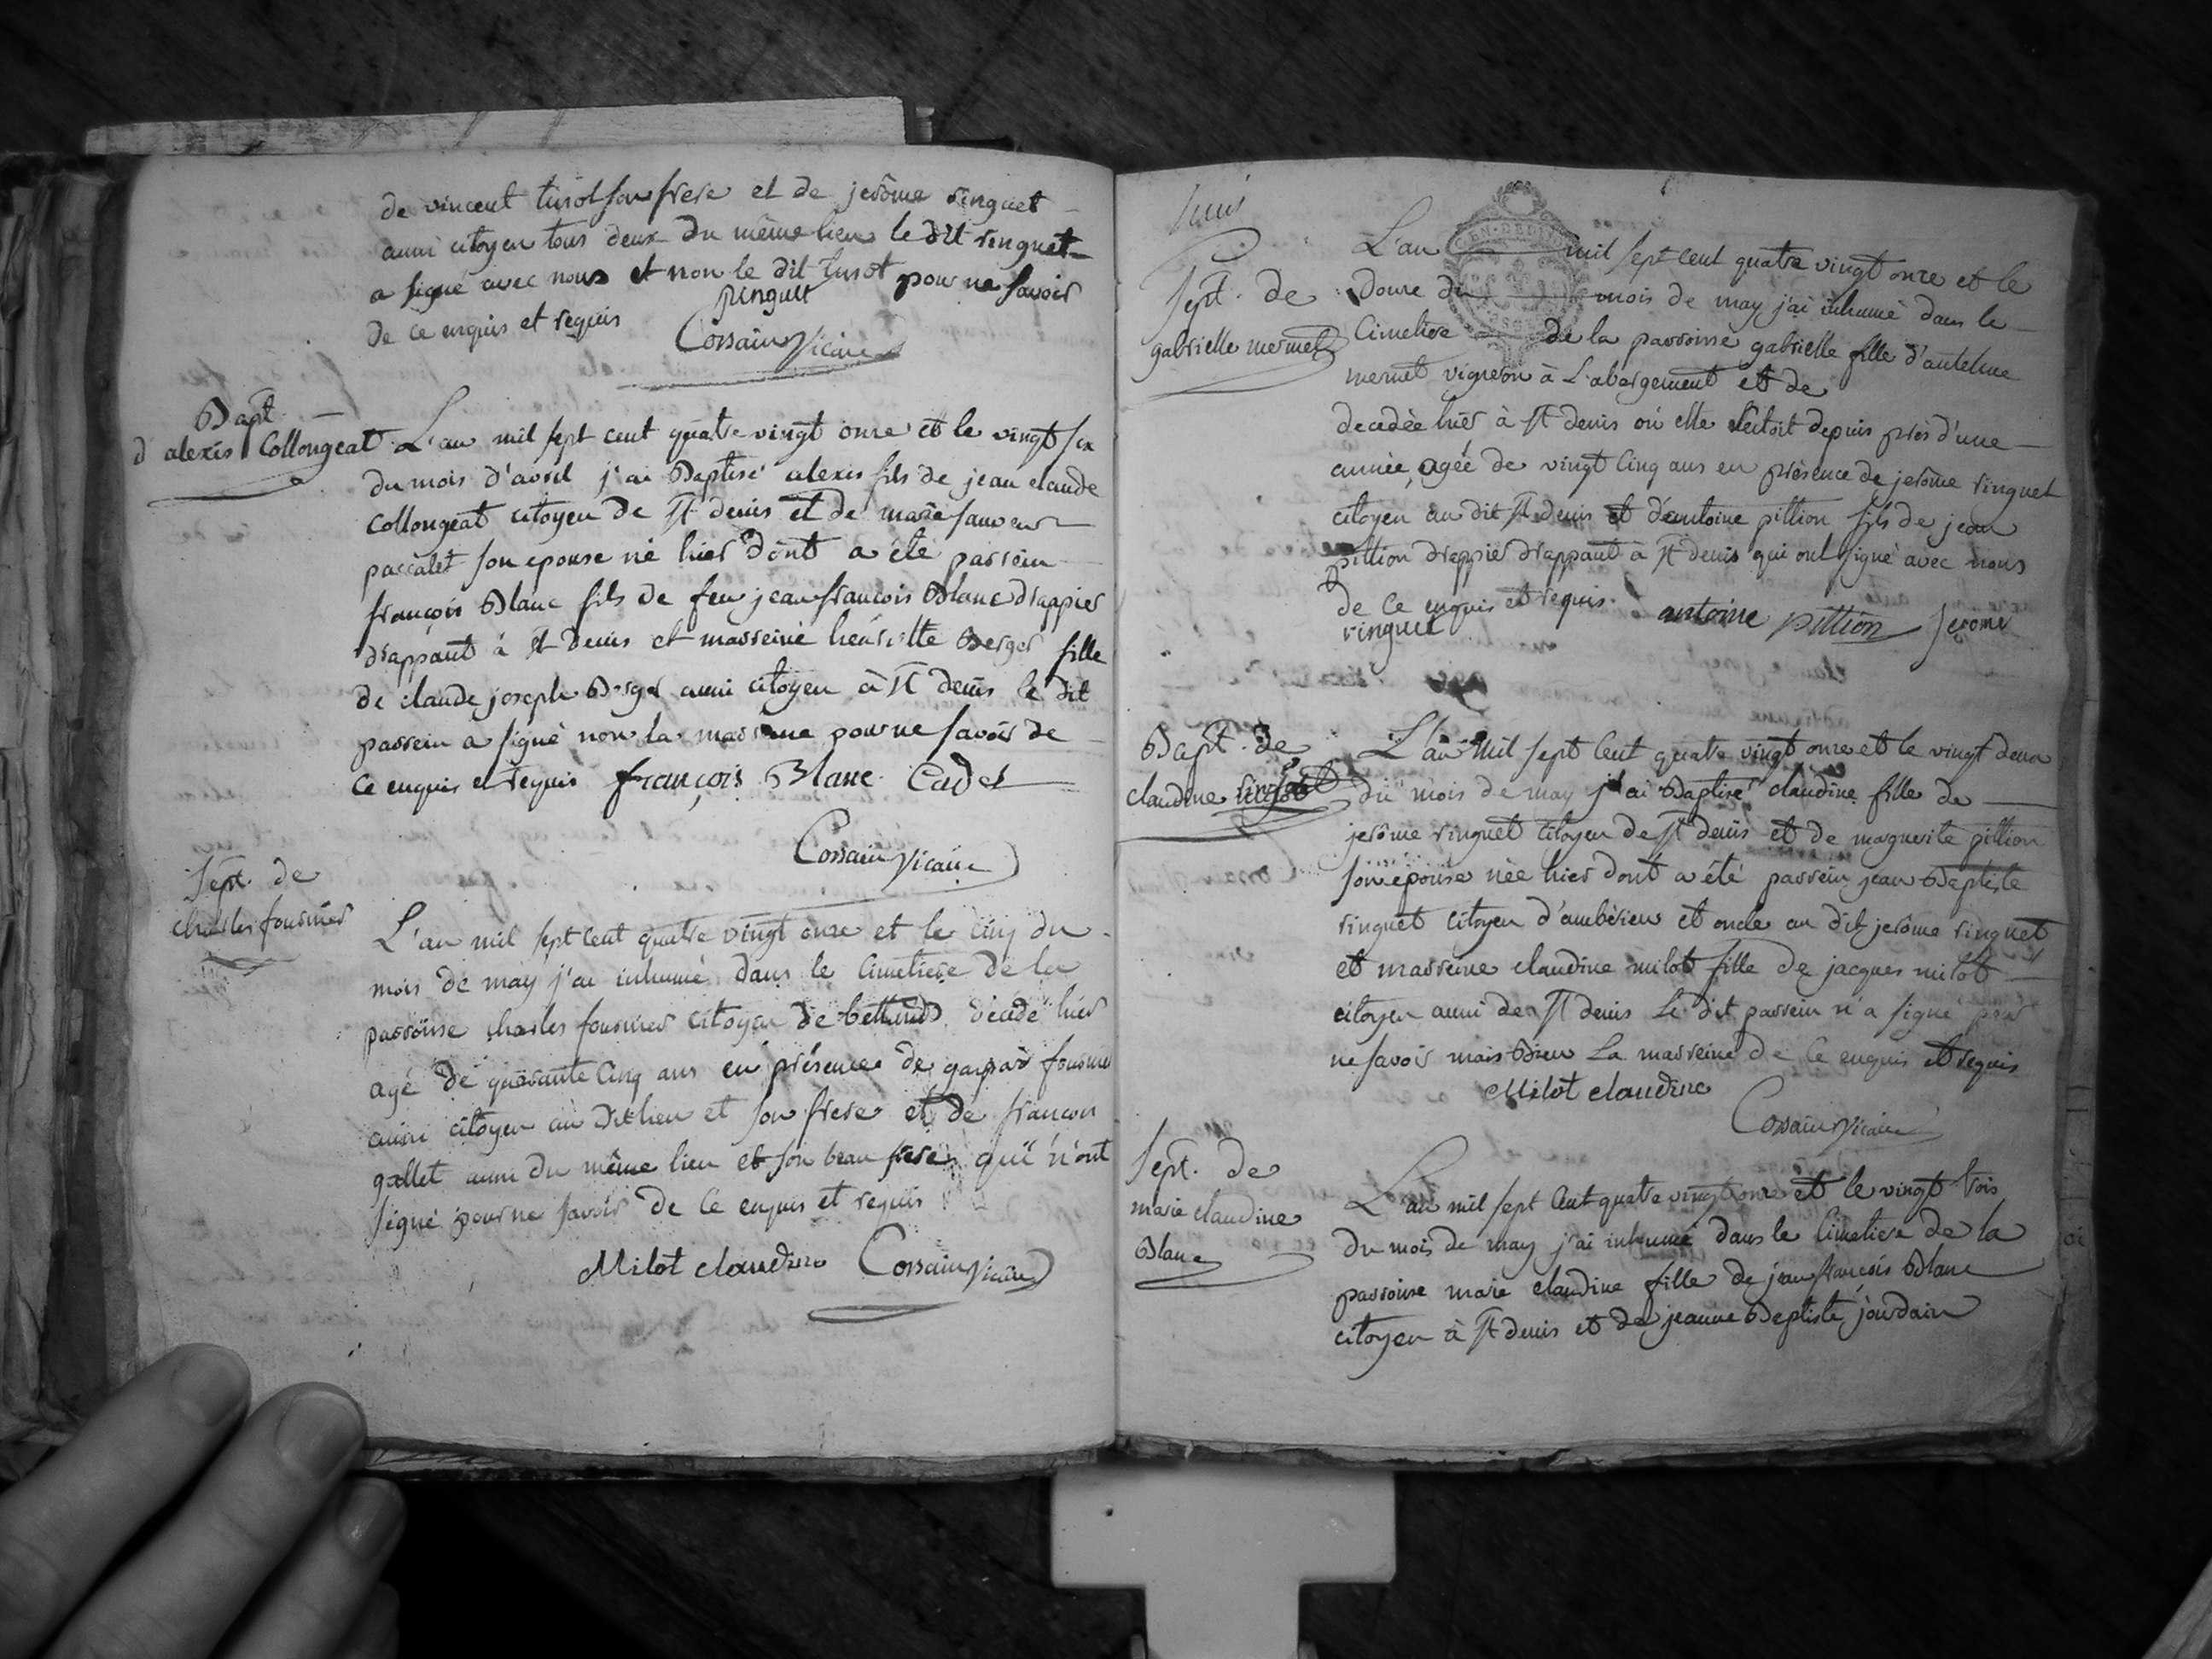 de vincent turot son frere et de jerôme ringuet
aussi citoyen tous deux du même lieu le dit ringuet
a signé avec nous et non le dit turot pour ne savoir
de ce enquis et requis ringuet
Cossain vicaire
Bapt.
d'alexis Collongeat
L'an mil sept cent quatre vingt onze et le vingt six
du mois d'avril j'ai Baptisé alexis fils de jean claude
Collongeat citoyen de St denis et de marie
paccalet son epouse né hier dont a été parrein
françois Blanc fils de feu jean françois Blanc drappier
drappant à St denis et marreine henriette Berger fille
de claude joseph Berger aussi citoyen à St denis le dit
parrein a signé non la marreine pour ne savoir de
ce enquis et requis françois Blanc Cadet
Cossain vicaire
Sept. de
charles fournier
L'an mil sept cent quatre vingt onze et le cinq du
mois de may j'ai inhumé dans le Cimetiere de la
parroisse charles fournier citoyen de décédé hier
agé de quarante cinq ans en présence de gaspar fournier
aussi citoyen au dit lieu et son frere et de françois
gallet aussi du même lieu et son beau frere qui n'ont
signé pour ne savoir de ce enquis et requis
Milot claudine Cossain vicaire
L'an mil sept cent quatre vingt onze et le
Sept. de
gabrielle mermet
douze du mois de may j'ai inhumé dans le
Cimetiere de la parroisse gabrielle fille d'antelme
mermet vigneron à L'abergement et de
decedée hier à St denis où elle étoit depuis près d'une
année, agée de vingt cinq ans en présence de jerôme ringuet
citoyen au dit St denis et d'antoine pittion fils de jean
pittion drappier drappant à St denis qui ont signé avec nous
de ce enquis et requis. antoine pittion Jerome
ringuet
Bapt. de
claudine ringuet
L'an Mil sept cent quatre vingt onze et le vingt deux
du mois de may j'ai Baptisé claudine fille de
jerôme ringuet citoyen de St denis et de marguerite pittion
son épouse née hier dont a été parrein jean Baptiste
ringuet citoyen d'ambérieu et oncle au dit jerôme ringuet
et marreine claudine milot fille de jacques milot
citoyen aussi de St denis Le dit parrein n'a signé pour
ne savoir mais bien La marreine de ce enquis et requis
Milot claudine
Cossain vicaire
Sept. de
marie claudine
Blanc
L'an mil sept cent quatre vingt onze et le vingt trois
du mois de may j'ai inhumé dans le Cimetiere de la
parroisse marie claudine fille de jean françois Blanc
citoyen à St denis et de jeanne Baptiste jourdain